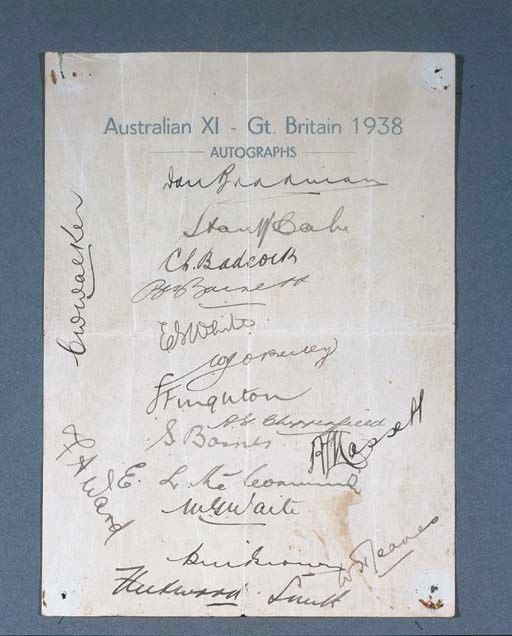 Australian XI - Gt. Britain 1938
AUTOGRAPHS
Don Bradman
Stan McCabe
C.L. Badcock
B.A. Barnett
E.S. White
W.J. O'Reilly
J Fingleton
A.G. Chipperfield
S Barnes
A L Hassett
E. L. McCormick
M.G. Waite
W H Jeanes
C W Walker
F A Ward
Fleetwood Smith